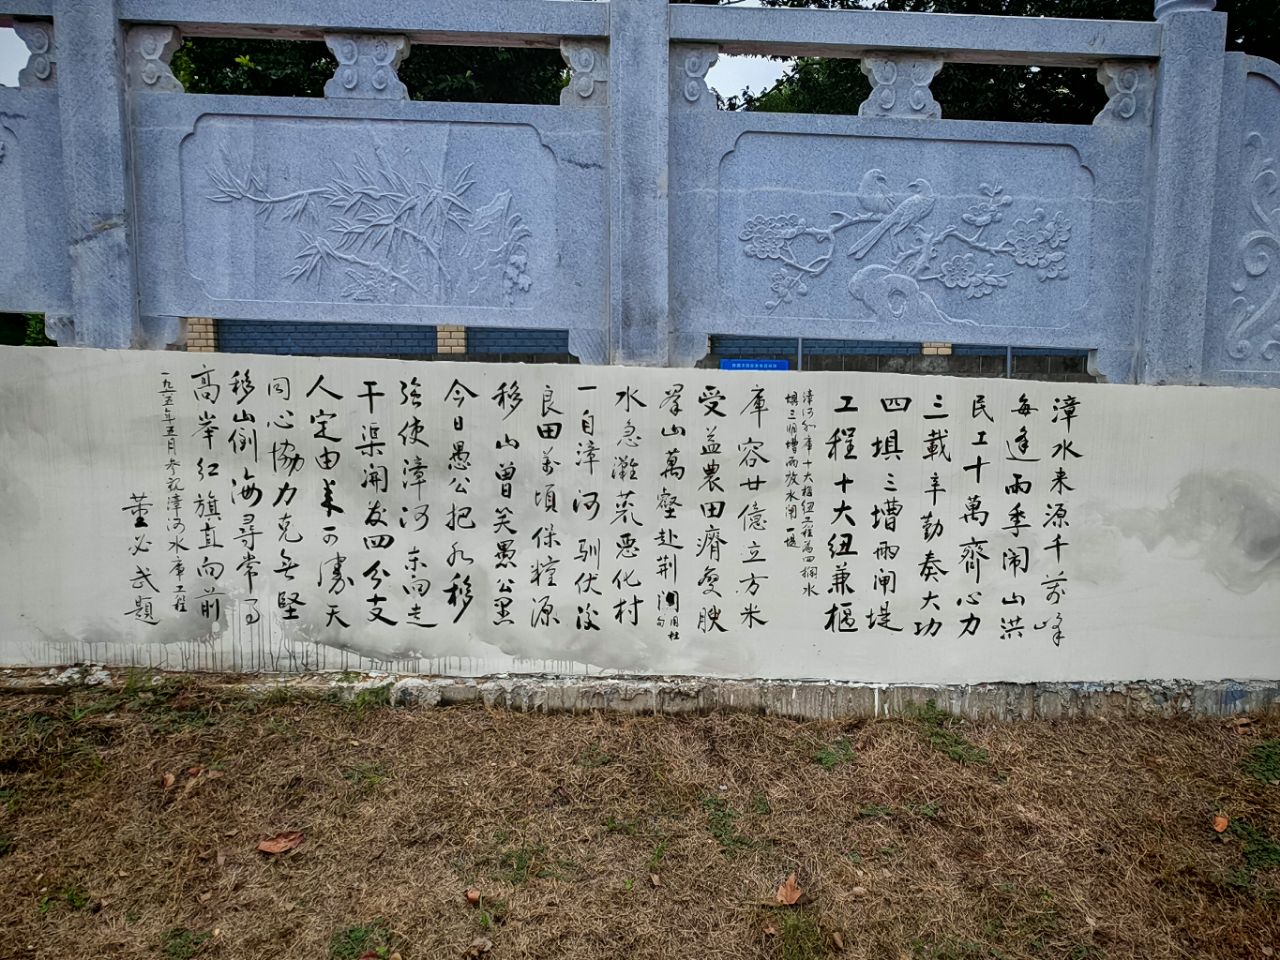 漳水来源千万峰
每逢雨季闹山洪
民工十萬齊心力
三載辛勤奏大功
四填三壋兩闸堤
工程十大纽兼樞
漳河水庫十大樞纽工程為四攔水
填三明壋兩放水闸一堤
庫容廿億立方米
受益農田濟瘦腴
羣山萬壑赴荆
用杜句
水急灘荒恶化村
一自漳河馴伏後
良田万頃保糧源
移山曾笑愚公黑
今日愚公把水移
強使漳河東向走
干渠開发四分支
人定由来可勝天
同心協力克立堅
移山倒海尋常事
高举红旗直向前
一九六五年五月参观漳河水庫工程
董必武題